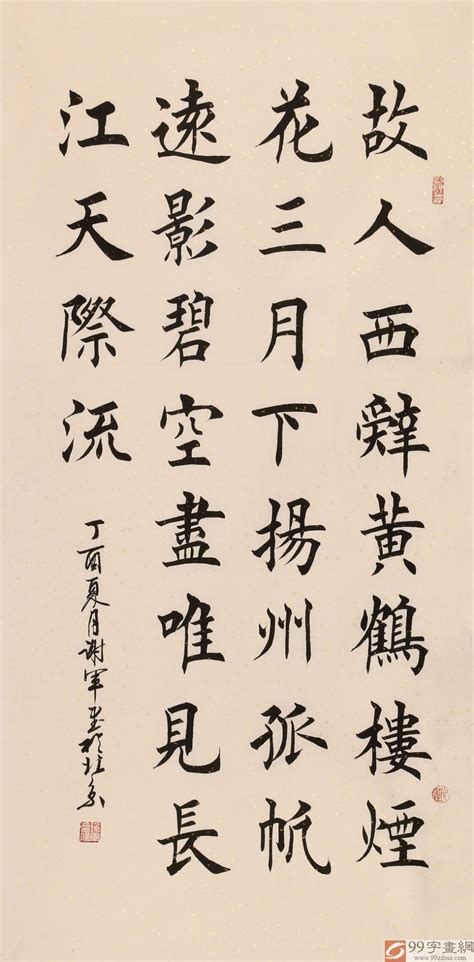 故人西辭黄鶴樓煙
花三月下揚州孤帆
遠影碧空盡唯見長
江天際流
丁酉夏月谢軍書於北京
99字畫網
www.99zihua.com